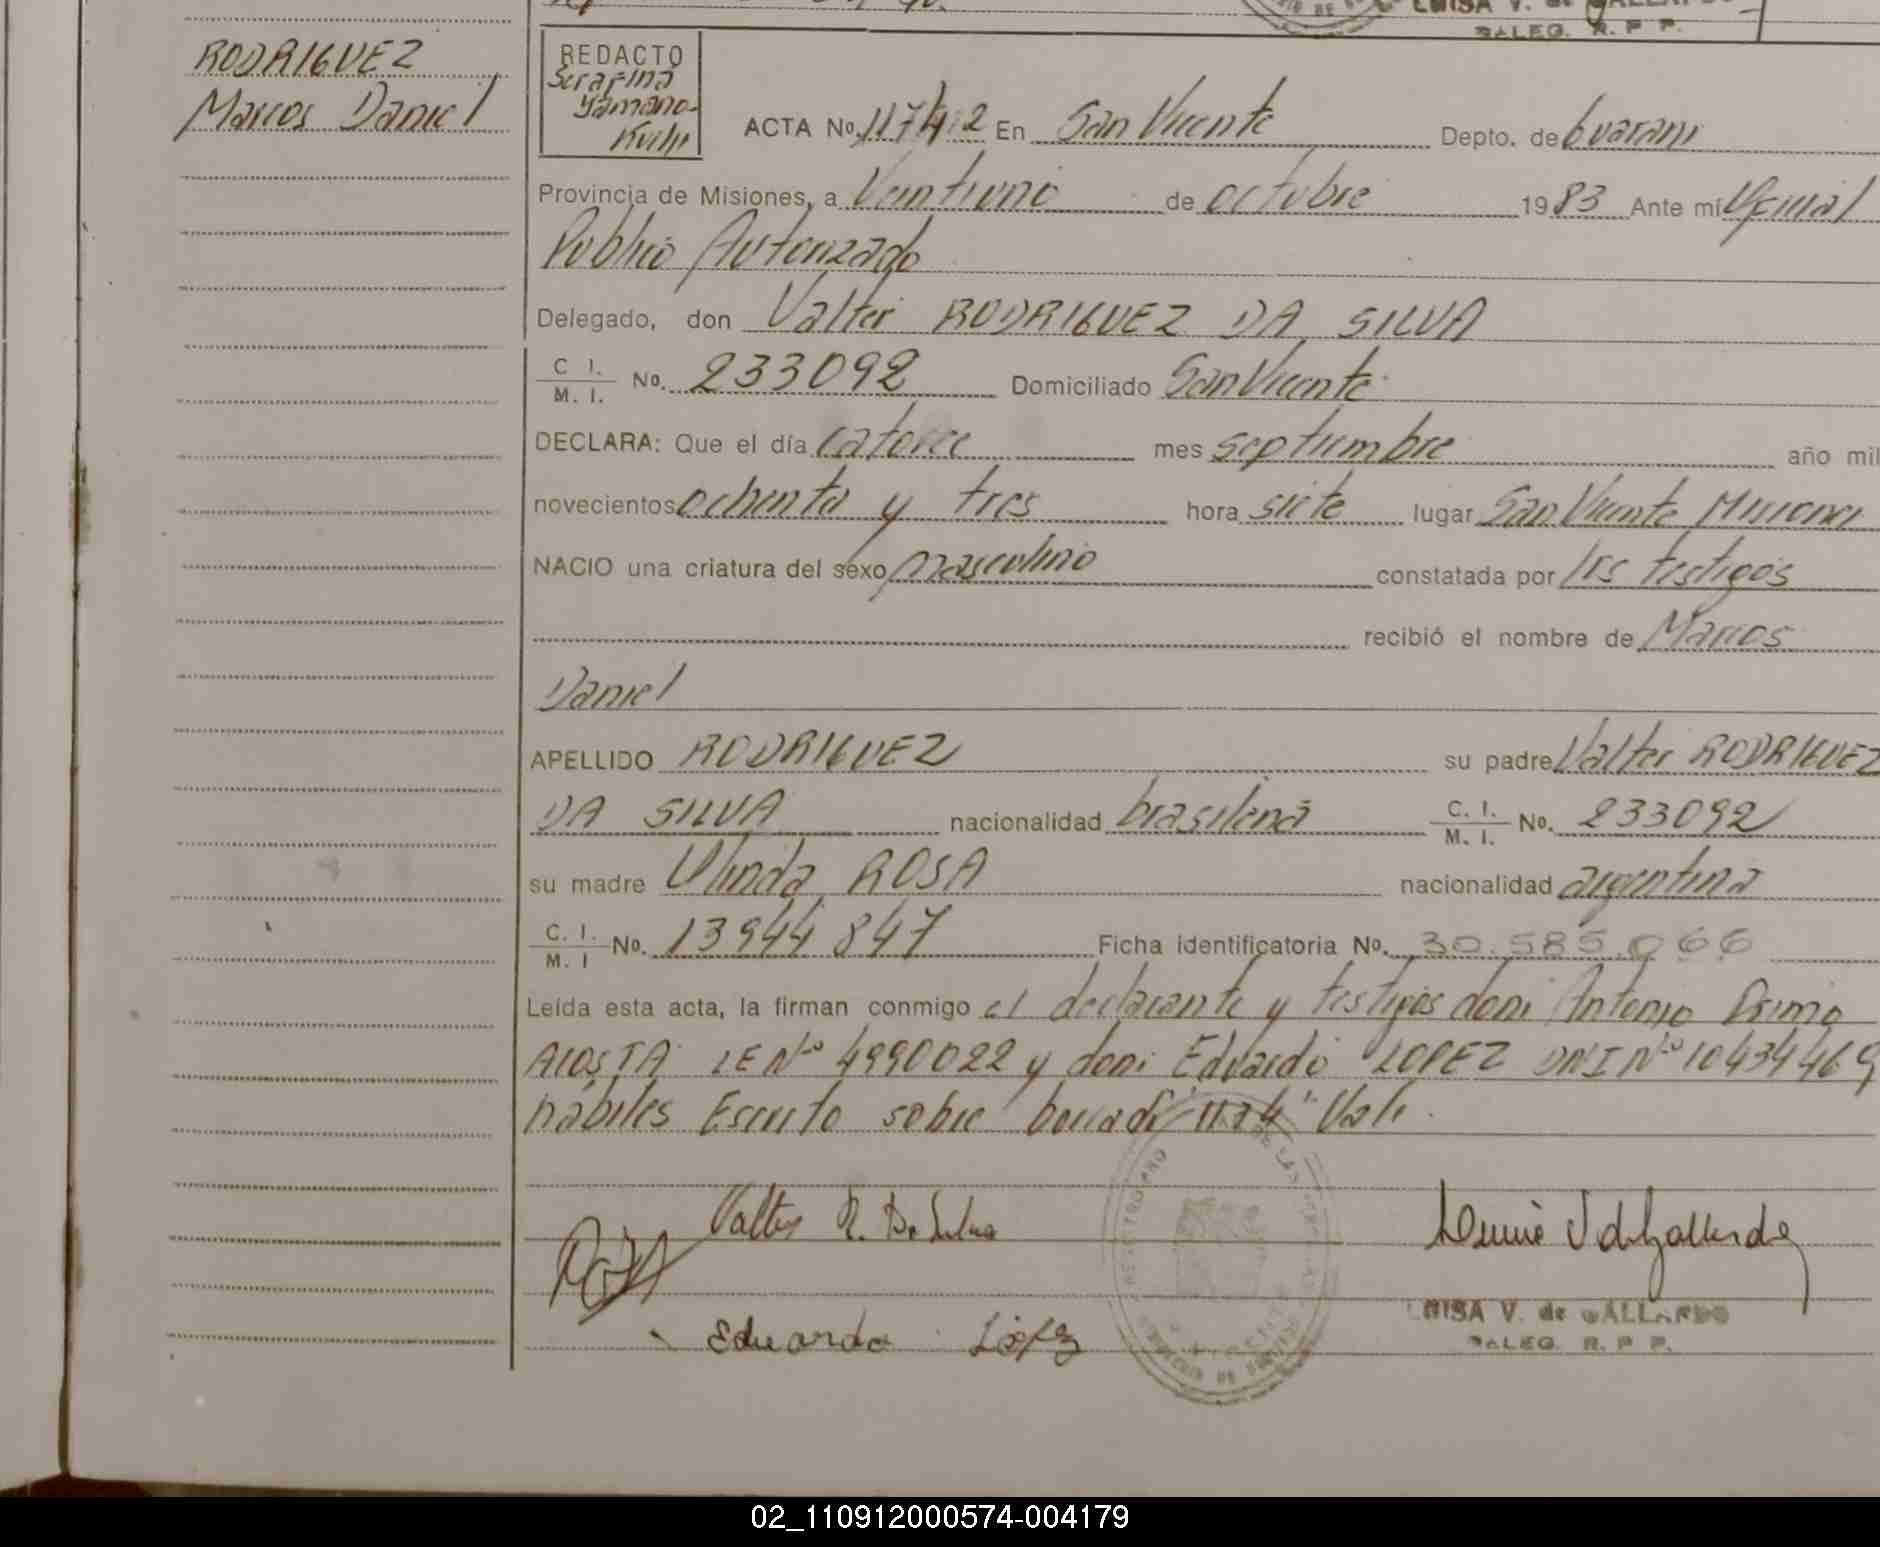 LUISA V. de GALLARDO
DALEG. R. P P.
RODRIGUEZ
Marcos Daniel
REDACTO
Serafina
Yamano-
ACTA No. 117412 En San Vicente Depto. de Guarani
Provincia de Misiones, a Veintiuno de octubre 1983 Ante mí Oficial
Publico Autorizado
Delegado, don Valter RODRIGUEZ DA SILVA
C I. / M. I. No. 233092 Domiciliado San Vicente
DECLARA: Que el día catorce mes septiembre año mil
novecientos ochenta y tres hora siete lugar San Vicente Misiones
NACIO una criatura del sexo masculino constatada por los testigos
recibió el nombre de Marcos
Daniel
APELLIDO RODRIGUEZ su padre Valter RODRIGUEZ
DA SILVA nacionalidad brasilena C. I. / M. I. No. 233092
su madre Olinda ROSA nacionalidad argentina
C. I. / M. I No. 13944847 Ficha identificatoria No. 30.585.066
Leída esta acta, la firman conmigo el declarante y testigos don: Antonio Primo
ACOSTA LE Nº 4990022 y don: Eduardo LOPEZ DNI Nº 10434469
hábiles Escrito sobre borrado "1174" Vale.
Valter R. Da Silva
Eduardo López
LUISA V. de GALLARDO
DALEG. R. P P.
02_110912000574-004179